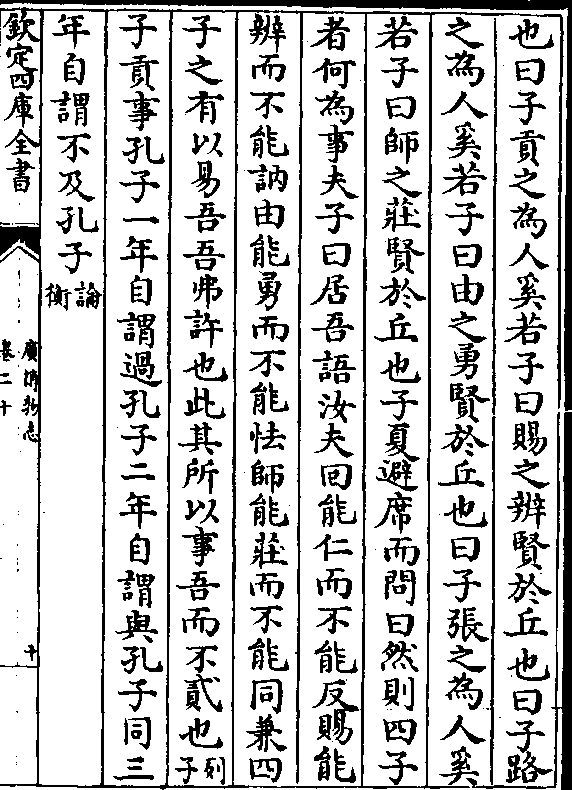 也曰子貢之為人奚若子曰賜之辨賢於丘也曰子路
之為人奚若子曰由之勇賢於丘也曰子張之為人奚
若子曰師之莊賢於丘也子夏避席而問曰然則四子
者何為事夫子曰居吾語汝夫回能仁而不能反賜能
辨而不能訥由能勇而不能怯師能莊而不能同兼四
子之有以易吾吾弗許也此其所以事吾而不貳也列子
子貢事孔子一年自謂過孔子二年自謂與孔子同三
年自謂不及孔子論衡
欽定四庫全書
廣博物志
卷二十
十